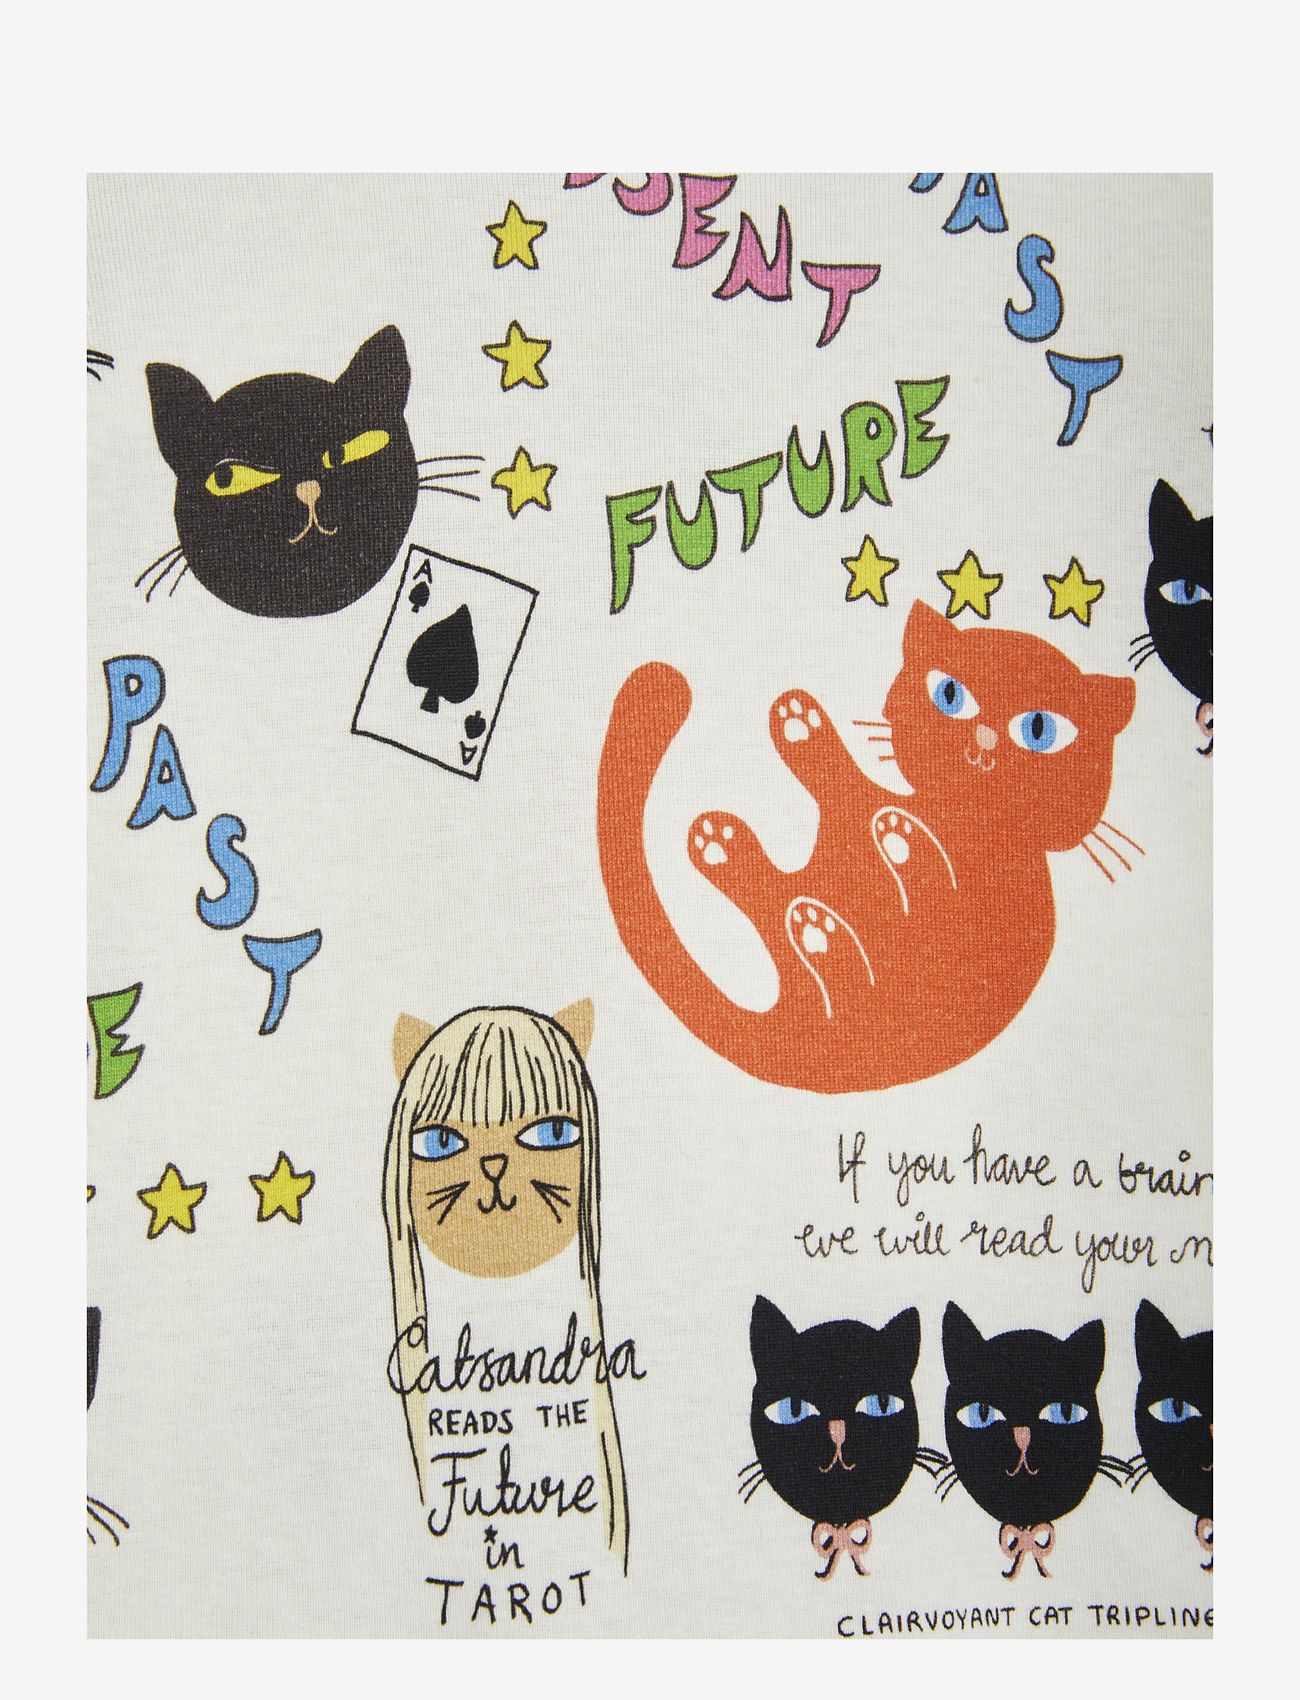 PAST
FUTURE
A
A
PAST
If you have a
we will read your
Catsandra
READS THE
Future
in
TAROT
CLAIRVOYANT CAT